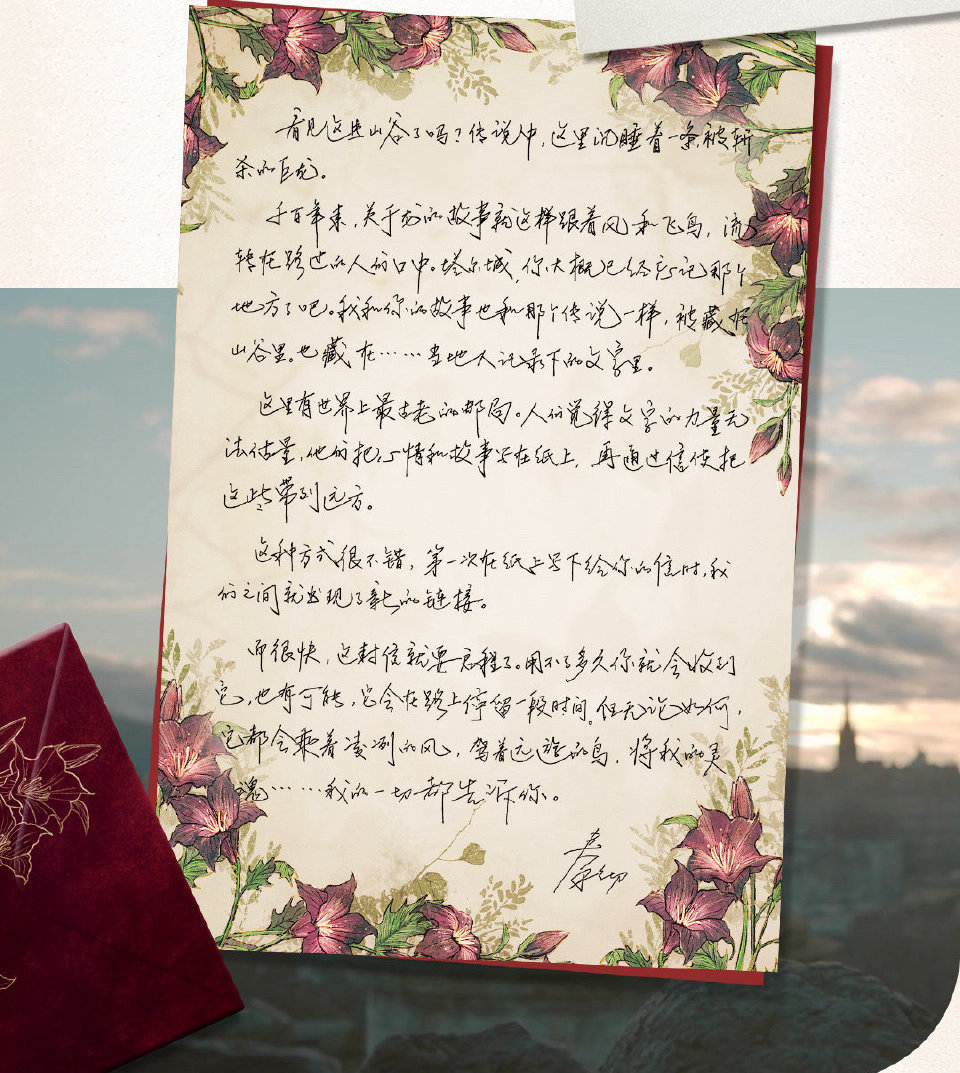 看见这些山谷了吗？传说中，这里沉睡着一条被斩
杀的巨龙。
千百年来，关于龙的故事就这样跟着风和飞鸟，流
转在路过的人们口中。塔尔城，你大概已经忘记那个
地方了吧。我和你的故事也和那个传说一样，被藏好
山谷里。也藏在……当地人记录下的文字里。
这里有世界上最古老的邮局。人们觉得文字的力量无
法估量，他们把心情和故事写在纸上，再通过信使把
这些带到远方。
这种方式很不错，第一次在纸上写下给你的信时，我
们之间就出现了新的链接。
而很快，这封信就要启程了。用不了多久你就会收到
它，也有可能，它会在路上停留一段时间。但无论如何，
它都会乘着凛冽的风，驾着远游的鸟，将我的灵
魂……我的一切都告诉你。
秦彻